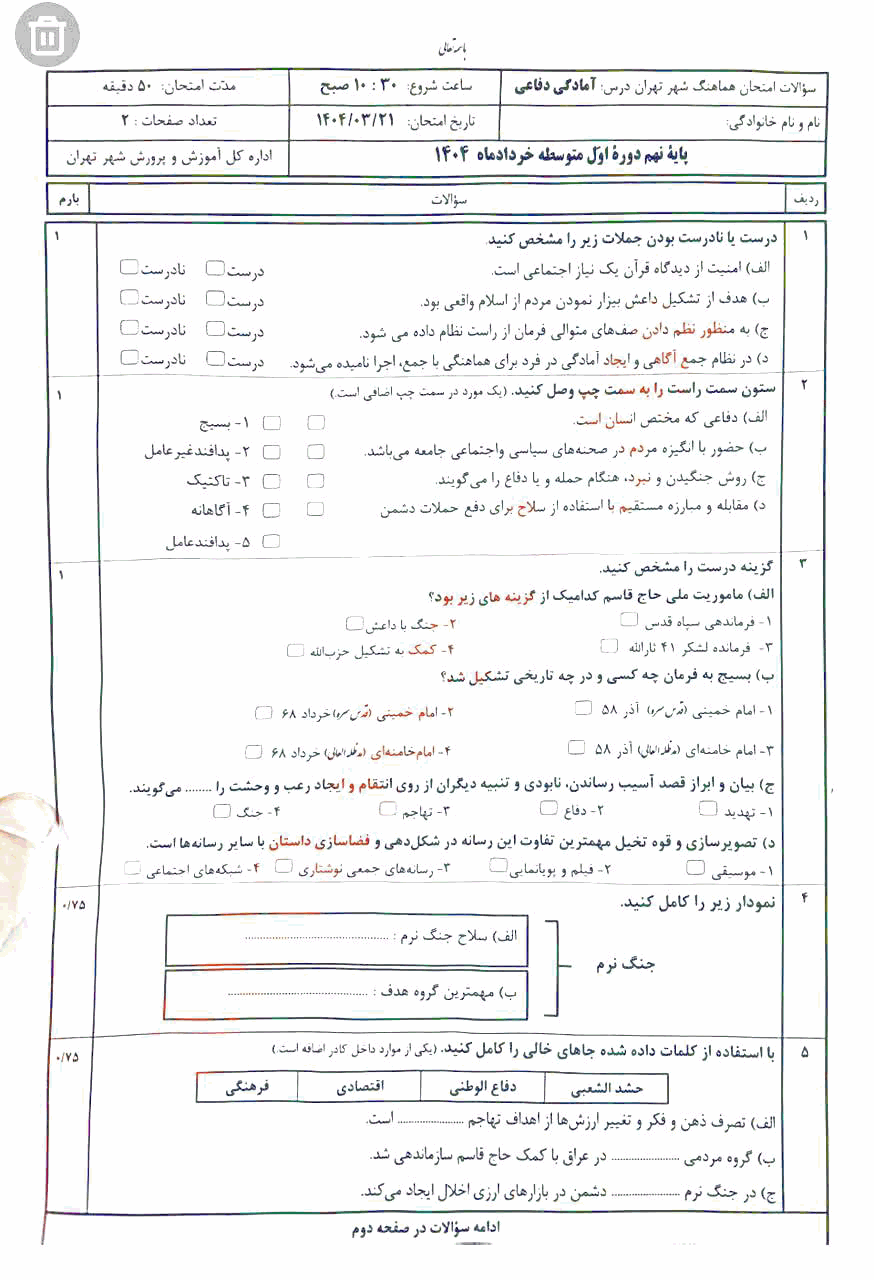 باسمه تعالی
سؤالات امتحان هماهنگ شهر تهران درس: آمادگی دفاعی ساعت شروع: ۳۰ : ۱۰ صبح مدت امتحان: ۵۰ دقیقه
نام و نام خانوادگی: تاریخ امتحان: ۱۴۰۴/۰۳/۲۱ تعداد صفحات : ۲
پایهٔ نهم دورهٔ اوّل متوسطه خردادماه ۱۴۰۴ اداره کل آموزش و پرورش شهر تهران
ردیف سؤالات بارم
۱ درست یا نادرست بودن جملات زیر را مشخص کنید. ۱
الف) امنیت از دیدگاه قرآن یک نیاز اجتماعی است. درست نادرست
ب) هدف از تشکیل داعش بیزار نمودن مردم از اسلام واقعی بود. درست نادرست
ج) به منظور نظم دادن صف‌های متوالی فرمان از راست نظام داده می شود. درست نادرست
د) در نظام جمع آگاهی و ایجاد آمادگی در فرد برای هماهنگی با جمع، اجرا نامیده می‌شود. درست نادرست
۲ ستون سمت راست را به سمت چپ وصل کنید. (یک مورد در سمت چپ اضافی است.) ۱
الف) دفاعی که مختص انسان است. ۱- بسیج
ب) حضور با انگیزه مردم در صحنه‌های سیاسی واجتماعی جامعه می‌باشد. ۲- پدافندغیرعامل
ج) روش جنگیدن و نبرد، هنگام حمله و یا دفاع را می‌گویند. ۳- تاکتیک
د) مقابله و مبارزه مستقیم با استفاده از سلاح برای دفع حملات دشمن ۴- آگاهانه
۵- پدافندعامل
۳ گزینه درست را مشخص کنید. ۱
الف) ماموریت ملی حاج قاسم کدامیک از گزینه های زیر بود؟
۱- فرماندهی سپاه قدس ۲- جنگ با داعش
۳- فرمانده لشکر ۴۱ ثارالله ۴- کمک به تشکیل حزب‌الله
ب) بسیج به فرمان چه کسی و در چه تاریخی تشکیل شد؟
۱- امام خمینی (قدس سره) آذر ۵۸ ۲- امام خمینی (قدس سره) خرداد ۶۸
۳- امام خامنه‌ای (مدظله العالی) آذر ۵۸ ۴- امام‌خامنه‌ای (مدظله العالی) خرداد ۶۸
ج) بیان و ابراز قصد آسیب رساندن، نابودی و تنبیه دیگران از روی انتقام و ایجاد رعب و وحشت را ........ می‌گویند.
۱- تهدید ۲- دفاع ۳- تهاجم ۴- جنگ
د) تصویرسازی و قوه تخیل مهمترین تفاوت این رسانه در شکل‌دهی و فضاسازی داستان با سایر رسانه‌ها است.
۱- موسیقی ۲- فیلم و پویانمایی ۳- رسانه‌های جمعی نوشتاری ۴- شبکه‌های اجتماعی
۴ نمودار زیر را کامل کنید. ۰/۷۵
جنگ نرم
الف) سلاح جنگ نرم : ........................................
ب) مهمترین گروه هدف : ........................................
۵ با استفاده از کلمات داده شده جاهای خالی را کامل کنید. (یکی از موارد داخل کادر اضافه است.) ۰/۷۵
حشد الشعبی دفاع الوطنی اقتصادی فرهنگی
الف) تصرف ذهن و فکر و تغییر ارزش‌ها از اهداف تهاجم .................... است.
ب) گروه مردمی .................... در عراق با کمک حاج قاسم سازماندهی شد.
ج) در جنگ نرم .................... دشمن در بازارهای ارزی اخلال ایجاد می‌کند.
ادامه سؤالات در صفحه دوم